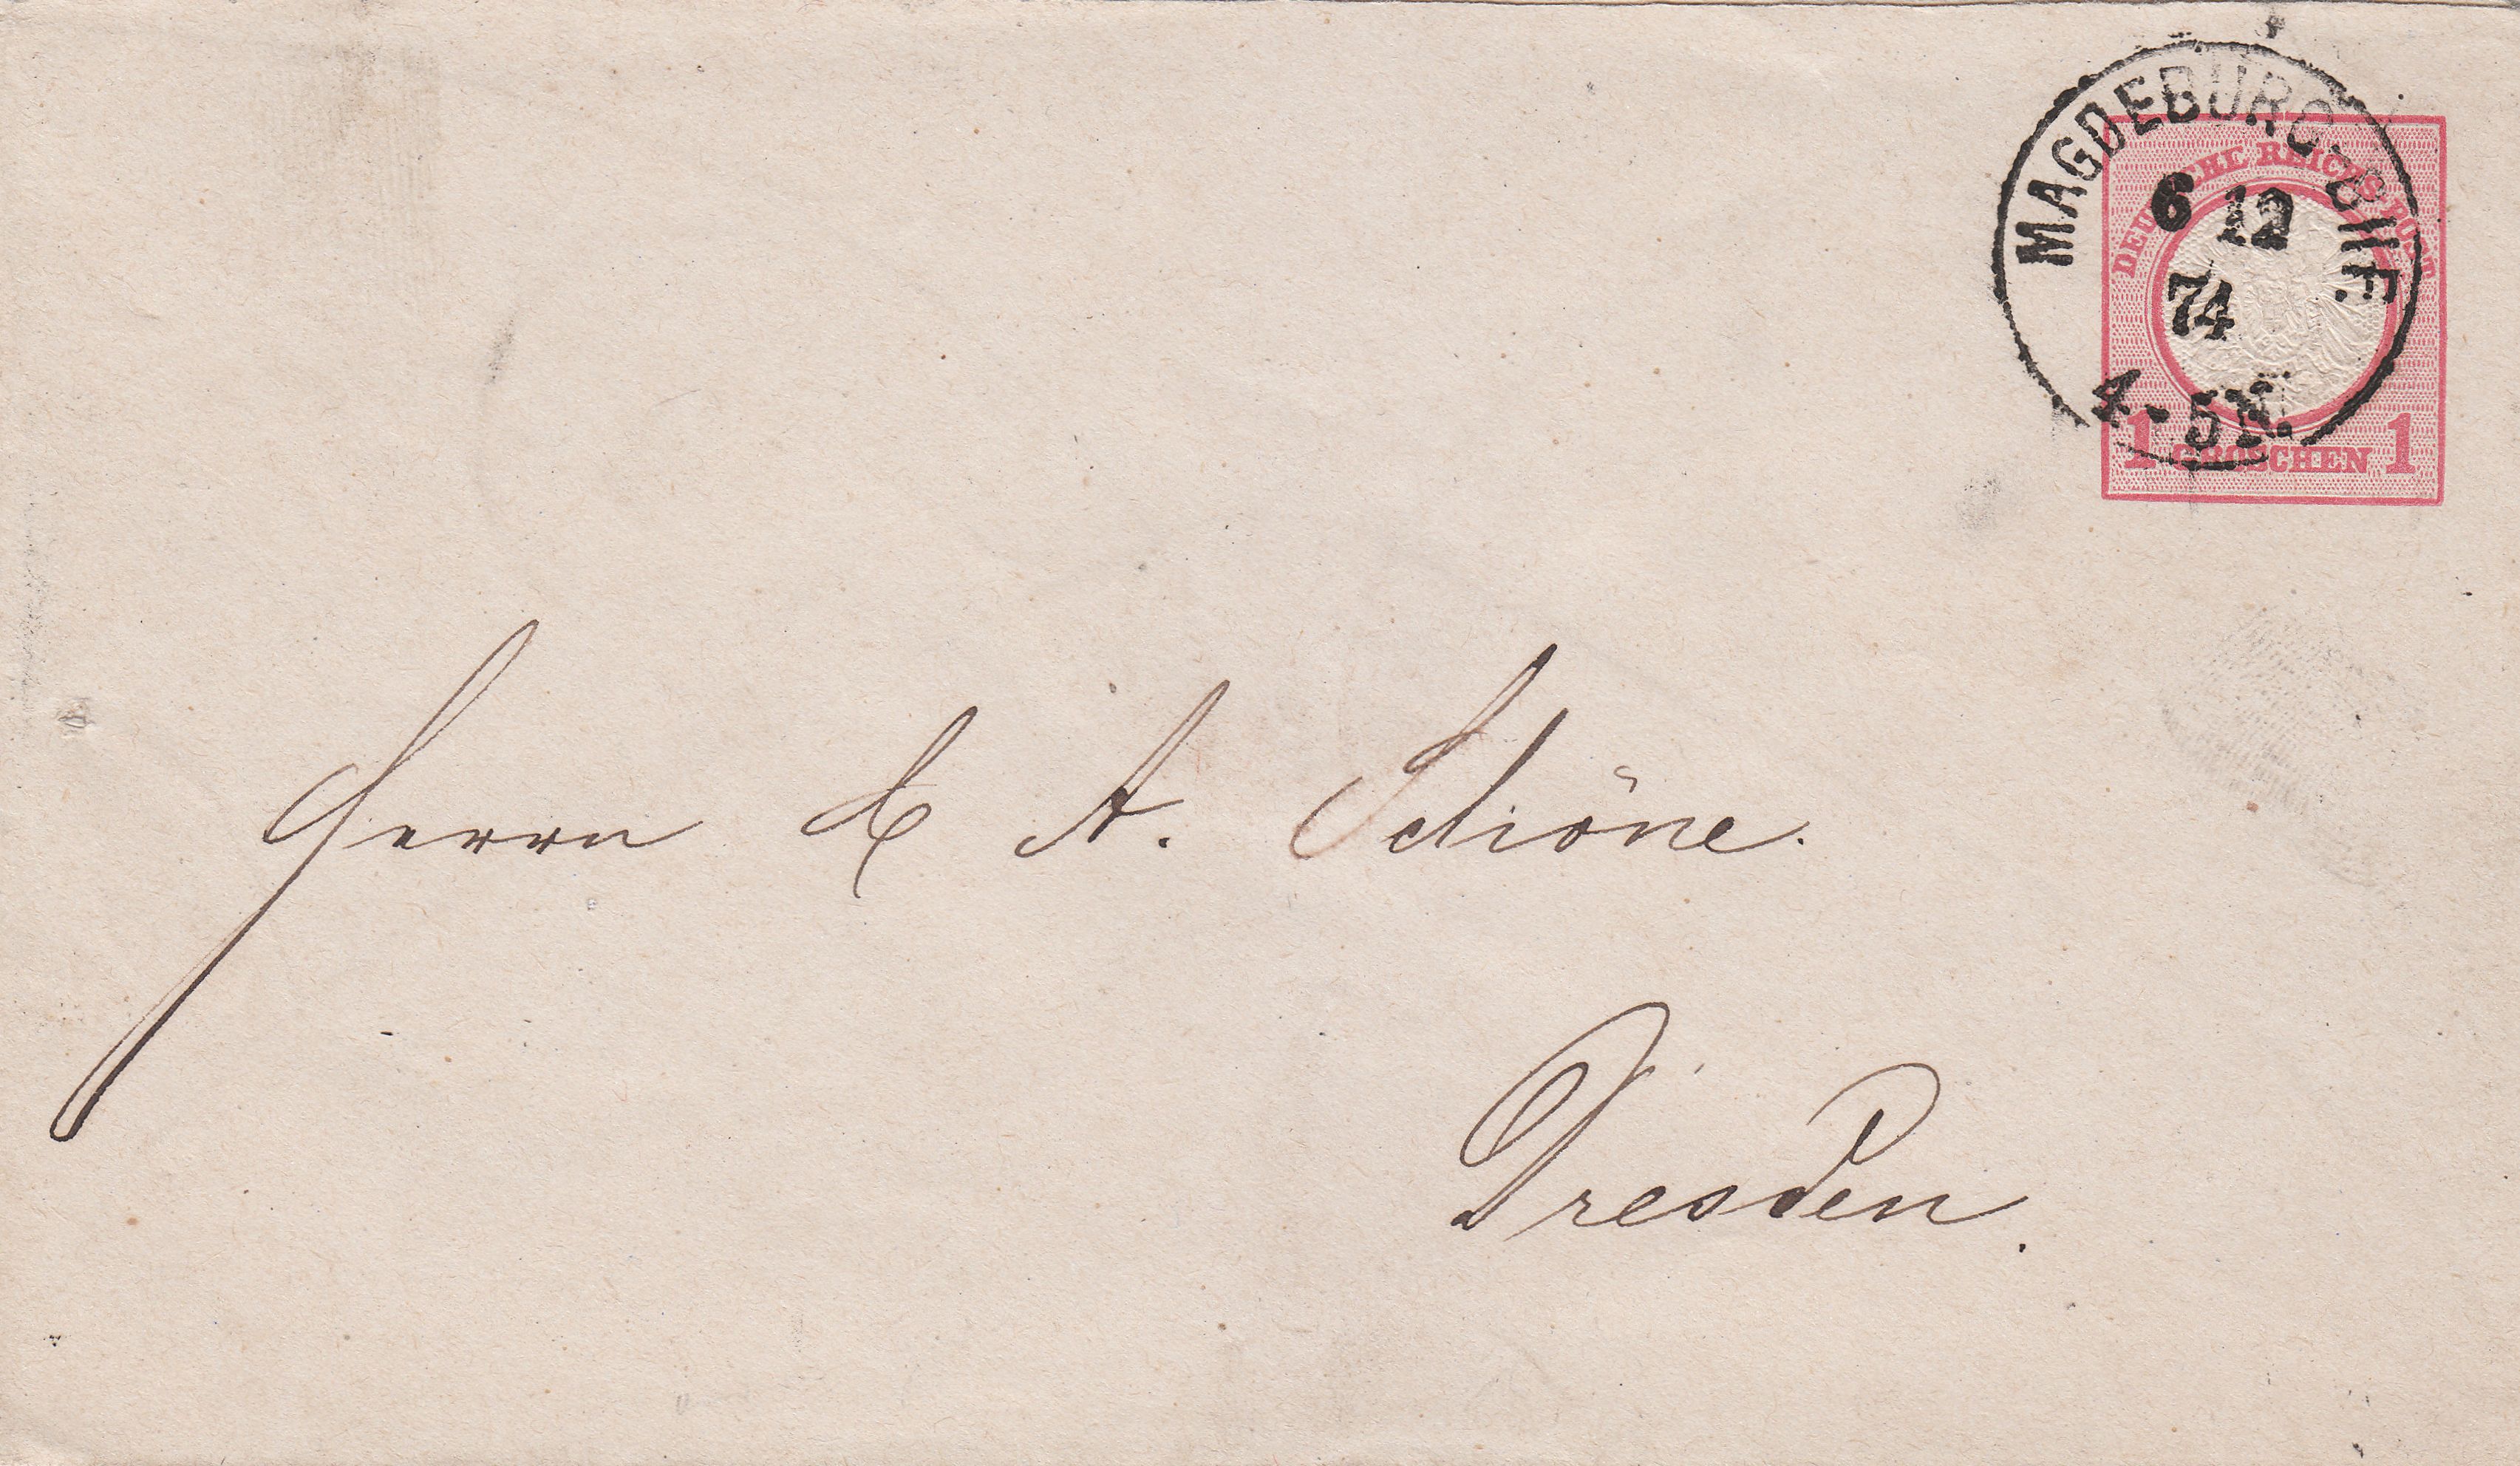 MAGDEBURG-BHF.
6 12
74
4-5N.
DEUTSCHE REICHS-POST
1 GROSCHEN 1
Herrn C A. Schöne.
Dresden.